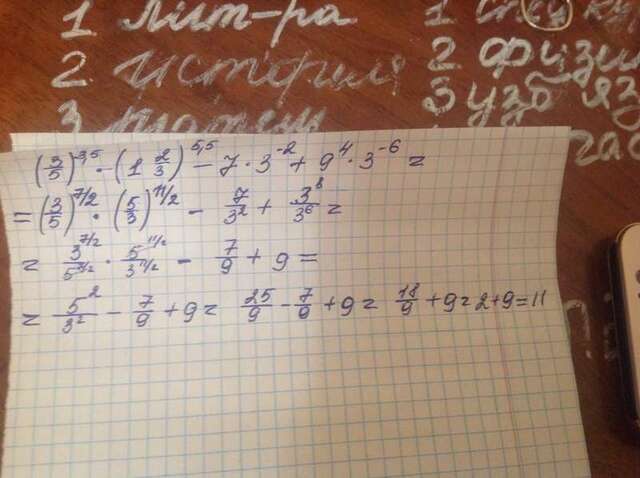 1 лит-ра
2 история
3
1
2 физи
3 узб яз
(3/5)^3,5 · (1 2/3)^5,5 - 7 · 3^-2 + 9^4 · 3^-6 =
= (3/5)^7/2 · (5/3)^11/2 - 7/3^2 + 3^8/3^6 =
= 3^7/2/5^7/2 · 5^11/2/3^11/2 - 7/9 + 9 =
= 5^2/3^2 - 7/9 + 9 = 25/9 - 7/9 + 9 = 18/9 + 9 = 2 + 9 = 11